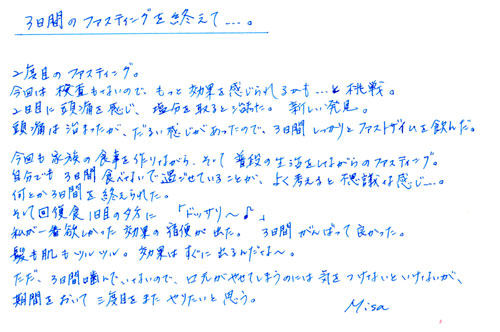 3日間のファスティングを終えて…。
2度目のファスティング。
今回は検査もないので、もっと効果を感じられるかも…と挑戦。
2日目に頭痛を感じ、塩分を取ると治った。新しい発見。
頭痛は治まったが、だるい感じがあったので、3日間しっかりとファストザイムを飲んだ。
今回も家族の食事を作りながら、そして普段の生活をしながらのファスティング。
自分でも3日間食べないで過ごせていることが、よく考えると不思議な感じ…。
何とか3日間を終えられた。
そして回復食1日目の夕方に「ドッサリ〜♪」
私が一番欲しかった効果の宿便が出た。3日間がんばって良かった。
髪も肌もツルツル。効果はすぐに出るんだな〜。
ただ、3日間噛んでいないので、口元がやせてしまうのには気をつけないといけないが、
期間をおいて三度目をまたやりたいと思う。
Misa